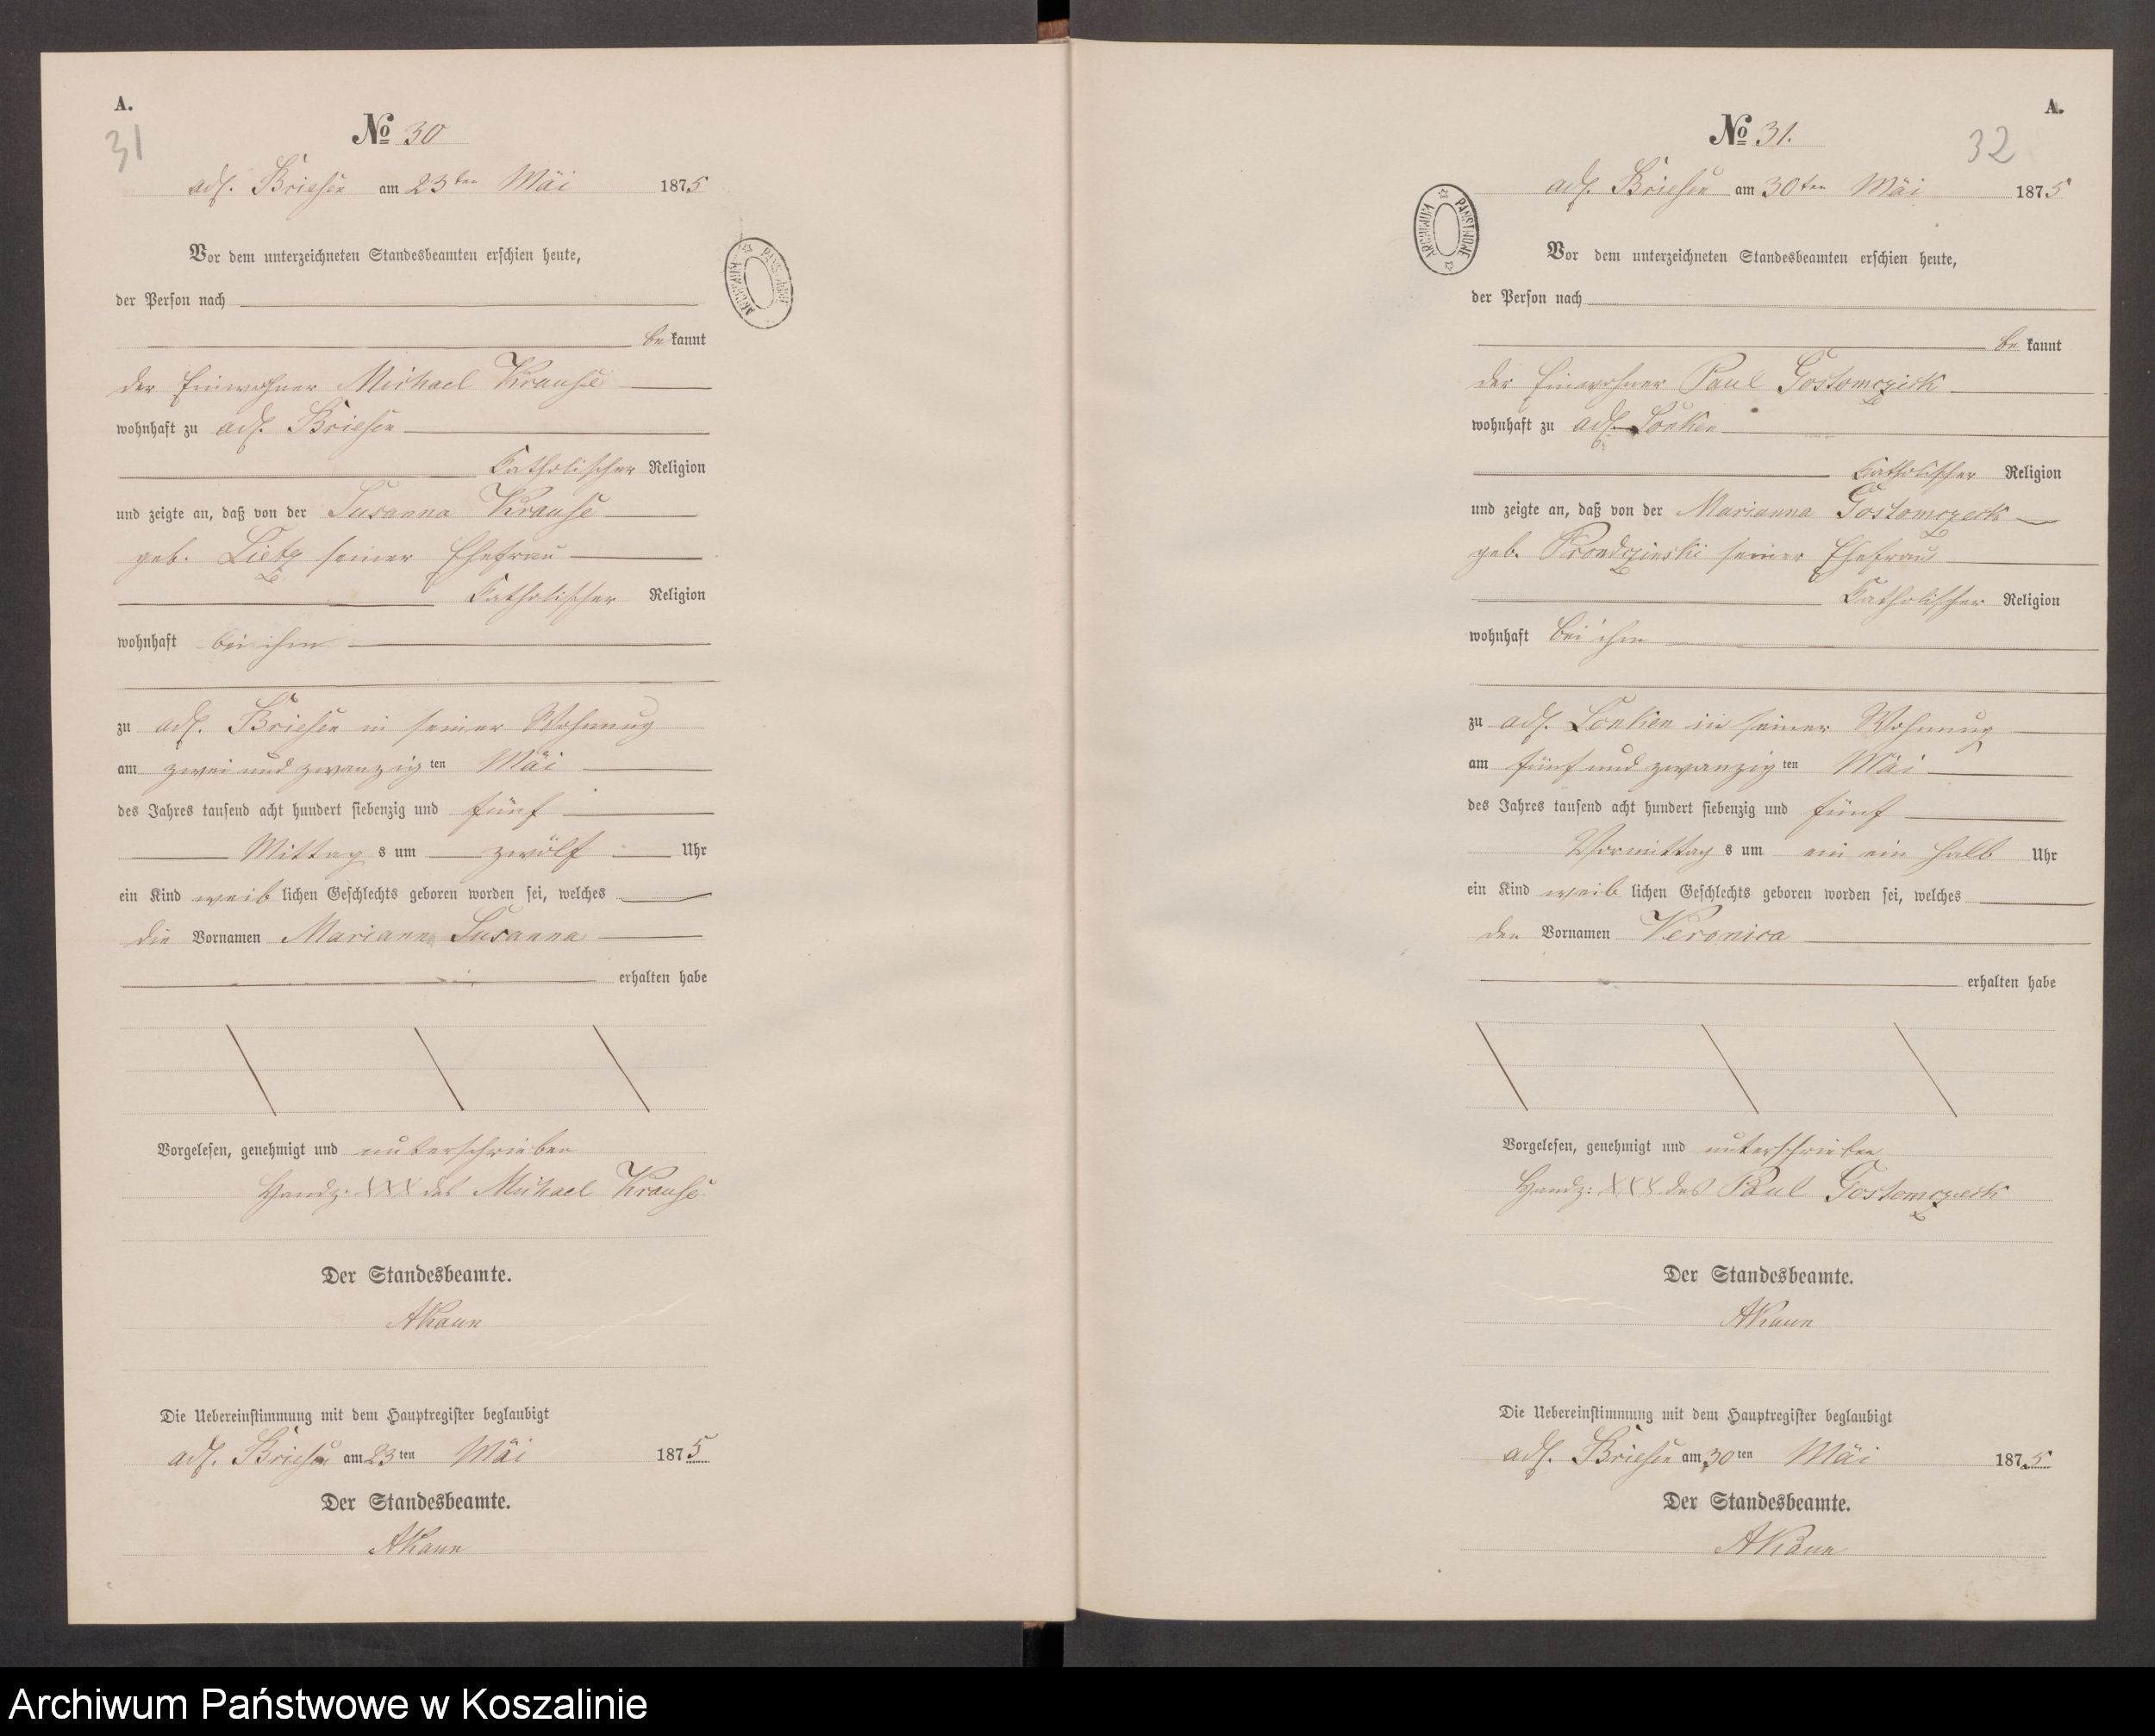 A.
31
No 30
adl. Briesen am 23ten Mai 1875
Vor dem unterzeichneten Standesbeamten erschien heute,
der Person nach
be kannt
der Einwohner Michael Krause
wohnhaft zu adl. Briesen
Katholischer Religion
und zeigte an, daß von der Susanna Krause
geb. Lietz seiner Ehefrau
Katholischer Religion
wohnhaft bei ihm
zu adl. Briesen in seiner Wohnung
am zwei und zwanzig ten Mai
des Jahres tausend acht hundert siebenzig und fünf
Mittag s um zwölf Uhr
ein Kind weib lichen Geschlechts geboren worden sei, welches
die Vornamen Mariann Susanna
erhalten habe
Vorgelesen, genehmigt und unterschrieben
Handz: XXX des Michael Krause
Der Standesbeamte.
AKaun
Die Uebereinstimmung mit dem Hauptregister beglaubigt
adl. Briesen am 23ten Mai 1875
Der Standesbeamte.
AKaun
A.
32
No 31.
adl. Briesen am 30ten Mai 1875
ARCHIWUM PAŃSTWOWE
Vor dem unterzeichneten Standesbeamten erschien heute,
der Person nach
be kannt
der Einwohner Paul Gostomczick
wohnhaft zu adl. Lonken
Katholischer Religion
und zeigte an, daß von der Marianna Gostomczeck
geb. Prondzinski seiner Ehefrau
Katholischer Religion
wohnhaft bei ihm
zu adl. Lonken in seiner Wohnung
am fünf und zwanzig ten Mai
des Jahres tausend acht hundert siebenzig und fünf
Vormittag s um ein ein halb Uhr
ein Kind weib lichen Geschlechts geboren worden sei, welches
den Vornamen Veronica
erhalten habe
Vorgelesen, genehmigt und unterschrieben
Handz: XXX des Paul Gostomczeck
Der Standesbeamte.
AKaun
Die Uebereinstimmung mit dem Hauptregister beglaubigt
adl. Briesen am 30ten Mai 1875
Der Standesbeamte.
AKaun
Archiwum Państwowe w Koszalinie